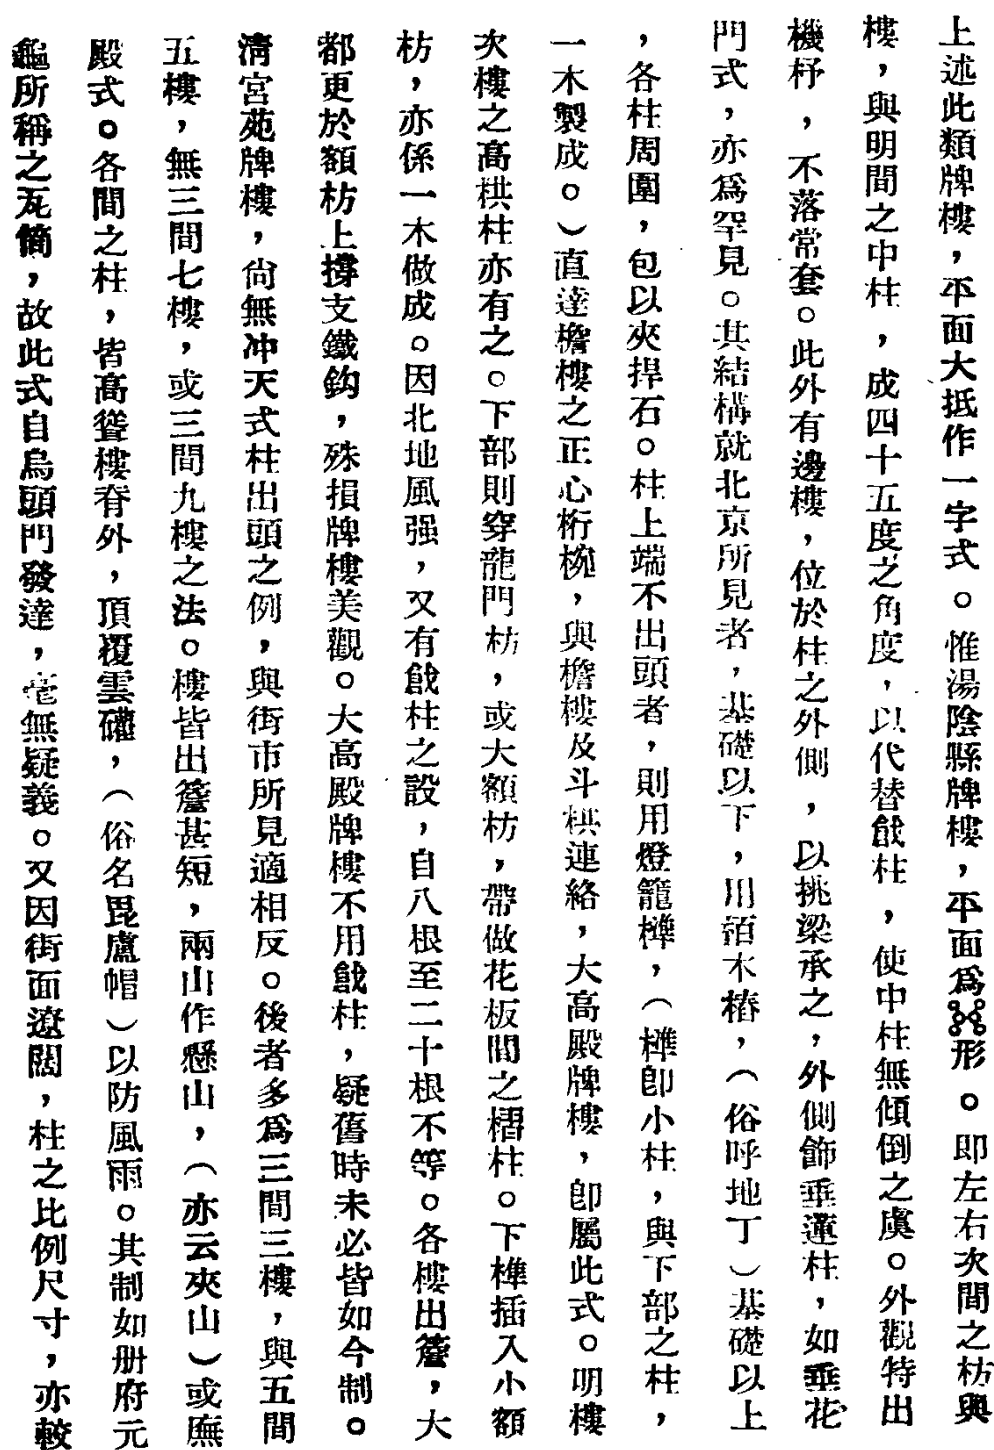 上述此類牌樓，平面大抵作一字式。惟湯陰縣牌樓，平面爲形。卽左右次間之枋與
樓，與明間之中柱，成四十五度之角度，以代替戧柱，使中柱無傾倒之虞。外觀特出
機杼，不落常套。此外有邊樓，位於柱之外側，以挑梁承之，外側飾垂蓮柱，如垂花
門式，亦爲罕見。其結構就北京所見者，基礎以下，用栢木樁，（俗呼地丁）基礎以上
，各柱周圍，包以夾捍石。柱上端不出頭者，則用燈籠榫，（榫卽小柱，與下部之柱，
一木製成。）直達檐樓之正心桁椀，與檐樓及斗栱連絡，大高殿牌樓，卽屬此式。明樓
次樓之高栱柱亦有之。下部則穿龍門枋，或大額枋，帶做花板間之槢柱。下榫插入小額
枋，亦係一木做成。因北地風强，又有戧柱之設，自八根至二十根不等。各樓出簷，大
都更於額枋上撐支鐵鈎，殊損牌樓美觀。大高殿牌樓不用戧柱，疑舊時未必皆如今制。
淸宮苑牌樓，尙無冲天式柱出頭之例，與街市所見適相反。後者多爲三間三樓，與五間
五樓，無三間七樓，或三間九樓之法。樓皆出簷甚短，兩山作懸山，（亦云夾山）或廡
殿式。各間之柱，皆高聳樓脊外，頂覆雲罐，（俗名毘盧帽）以防風雨。其制如册府元
龜所稱之瓦筒，故此式自烏頭門發達，毫無疑義。又因街面遼闊，柱之比例尺寸，亦較